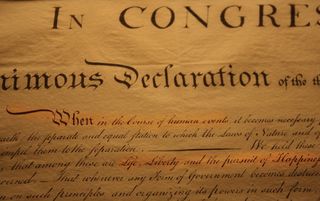 In CONGRES
nimous Declaration of the th
When in the Course of human events, it becomes necessary
the separate and equal station to which the Laws of Nature and of
them to the separation. We hold these
that among these are Life, Liberty and the pursuit of Happines
That whenever any Form of Government becomes destruc
on such principles and organizing its powers in such form